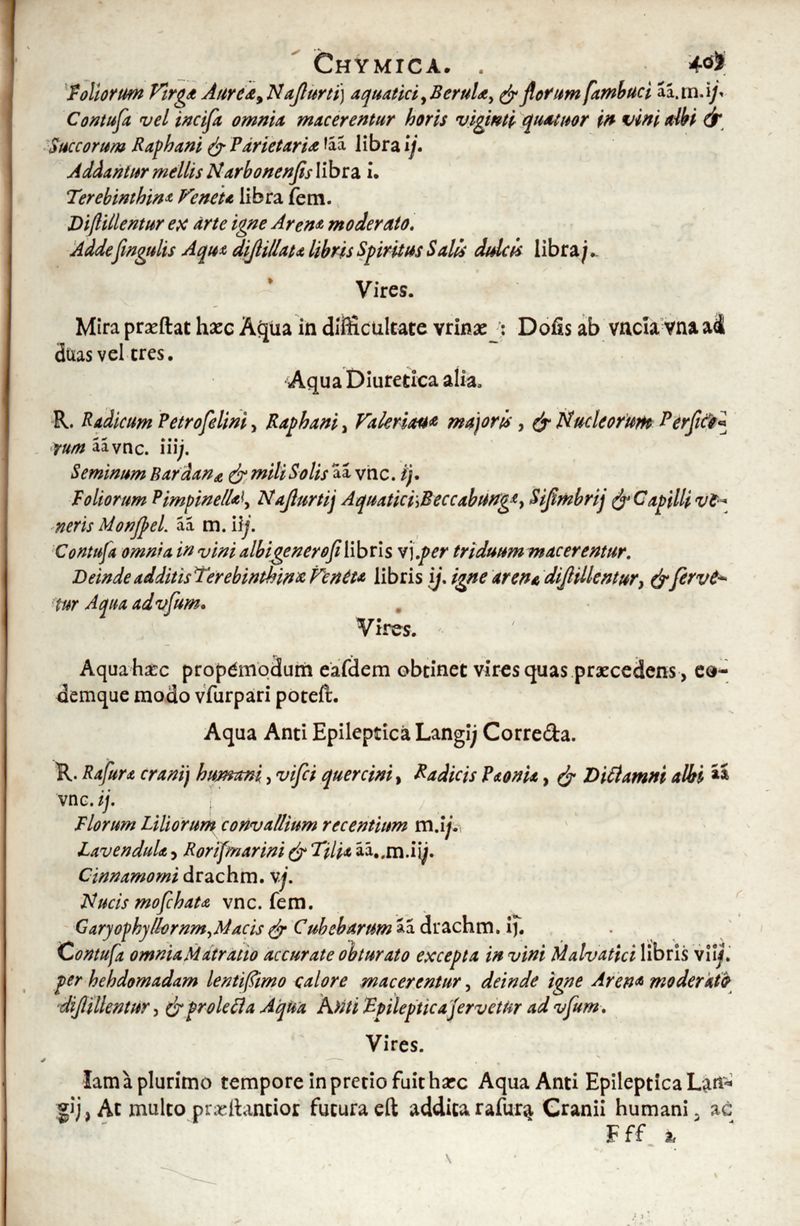 CHYMICA.
Foliorum Virgæ Aureæ, Naſturtij aquatici, Berulæ, & florum ſambuci āā. m. ij.
Contuſa vel inciſa omnia macerentur horis viginti quatuor in vini albi &
Succorum Raphani & Parietariæ āā libra ij.
Addantur mellis Narbonenſis libra i.
Terebinthinæ Venetæ libra ſem.
Diſtillentur ex arte igne Arenæ moderato.
Adde ſingulis Aquæ diſtillatæ libris Spiritus Salis dulcis libra j.
Vires.
Mira præſtat hæc Aqua in difficultate vrinæ : Doſis ab vncia vna ad
duas vel tres.
Aqua Diuretica alia.
R. Radicum Petroſelini, Raphani, Valerianæ majoris, & Nucleorum Perſico-
rum āā vnc. iiij.
Seminum Bardanæ & mili Solis āā vnc. ij.
Foliorum Pimpinellæ, Naſturtij Aquatici, Beccabungæ, Siſimbrij & Capilli ve-
neris Monſpel. āā m. iij.
Contuſa omnia in vini albi generoſi libris vj. per triduum macerentur.
Deinde additis Terebinthinæ Venetæ libris ij. igne arenæ diſtillentur, & ſerve-
tur Aqua ad vſum.
Vires.
Aqua hæc propémodum eaſdem obtinet vires quas præcedens, eo-
demque modo vſurpari poteſt.
Aqua Anti Epileptica Langij Correcta.
R. Raſuræ cranij humani, viſci quercini, Radicis Pæoniæ, & Dictamni albi āā
vnc. ij.
Florum Liliorum convallium recentium m. ij.
Lavendulæ, Roriſmarini & Tiliæ āā. m. iij.
Cinnamomi drachm. vj.
Nucis moſchatæ vnc. ſem.
Garyophyllornm, Macis & Cubebarum āā drachm. ij.
Contuſa omnia Matratio accurate obturato excepta in vini Malvatici libris viij.
per hebdomadam lentiſſimo calore macerentur, deinde igne Arenæ moderato
diſtillentur, & prolecta Aqua Anti Epileptica ſervetur ad vſum.
Vires.
Iam à plurimo tempore in pretio fuit hæc Aqua Anti Epileptica Lan-
gij, At multo præſtantior futura eſt addita raſura Cranii humani, ac
Fff 2